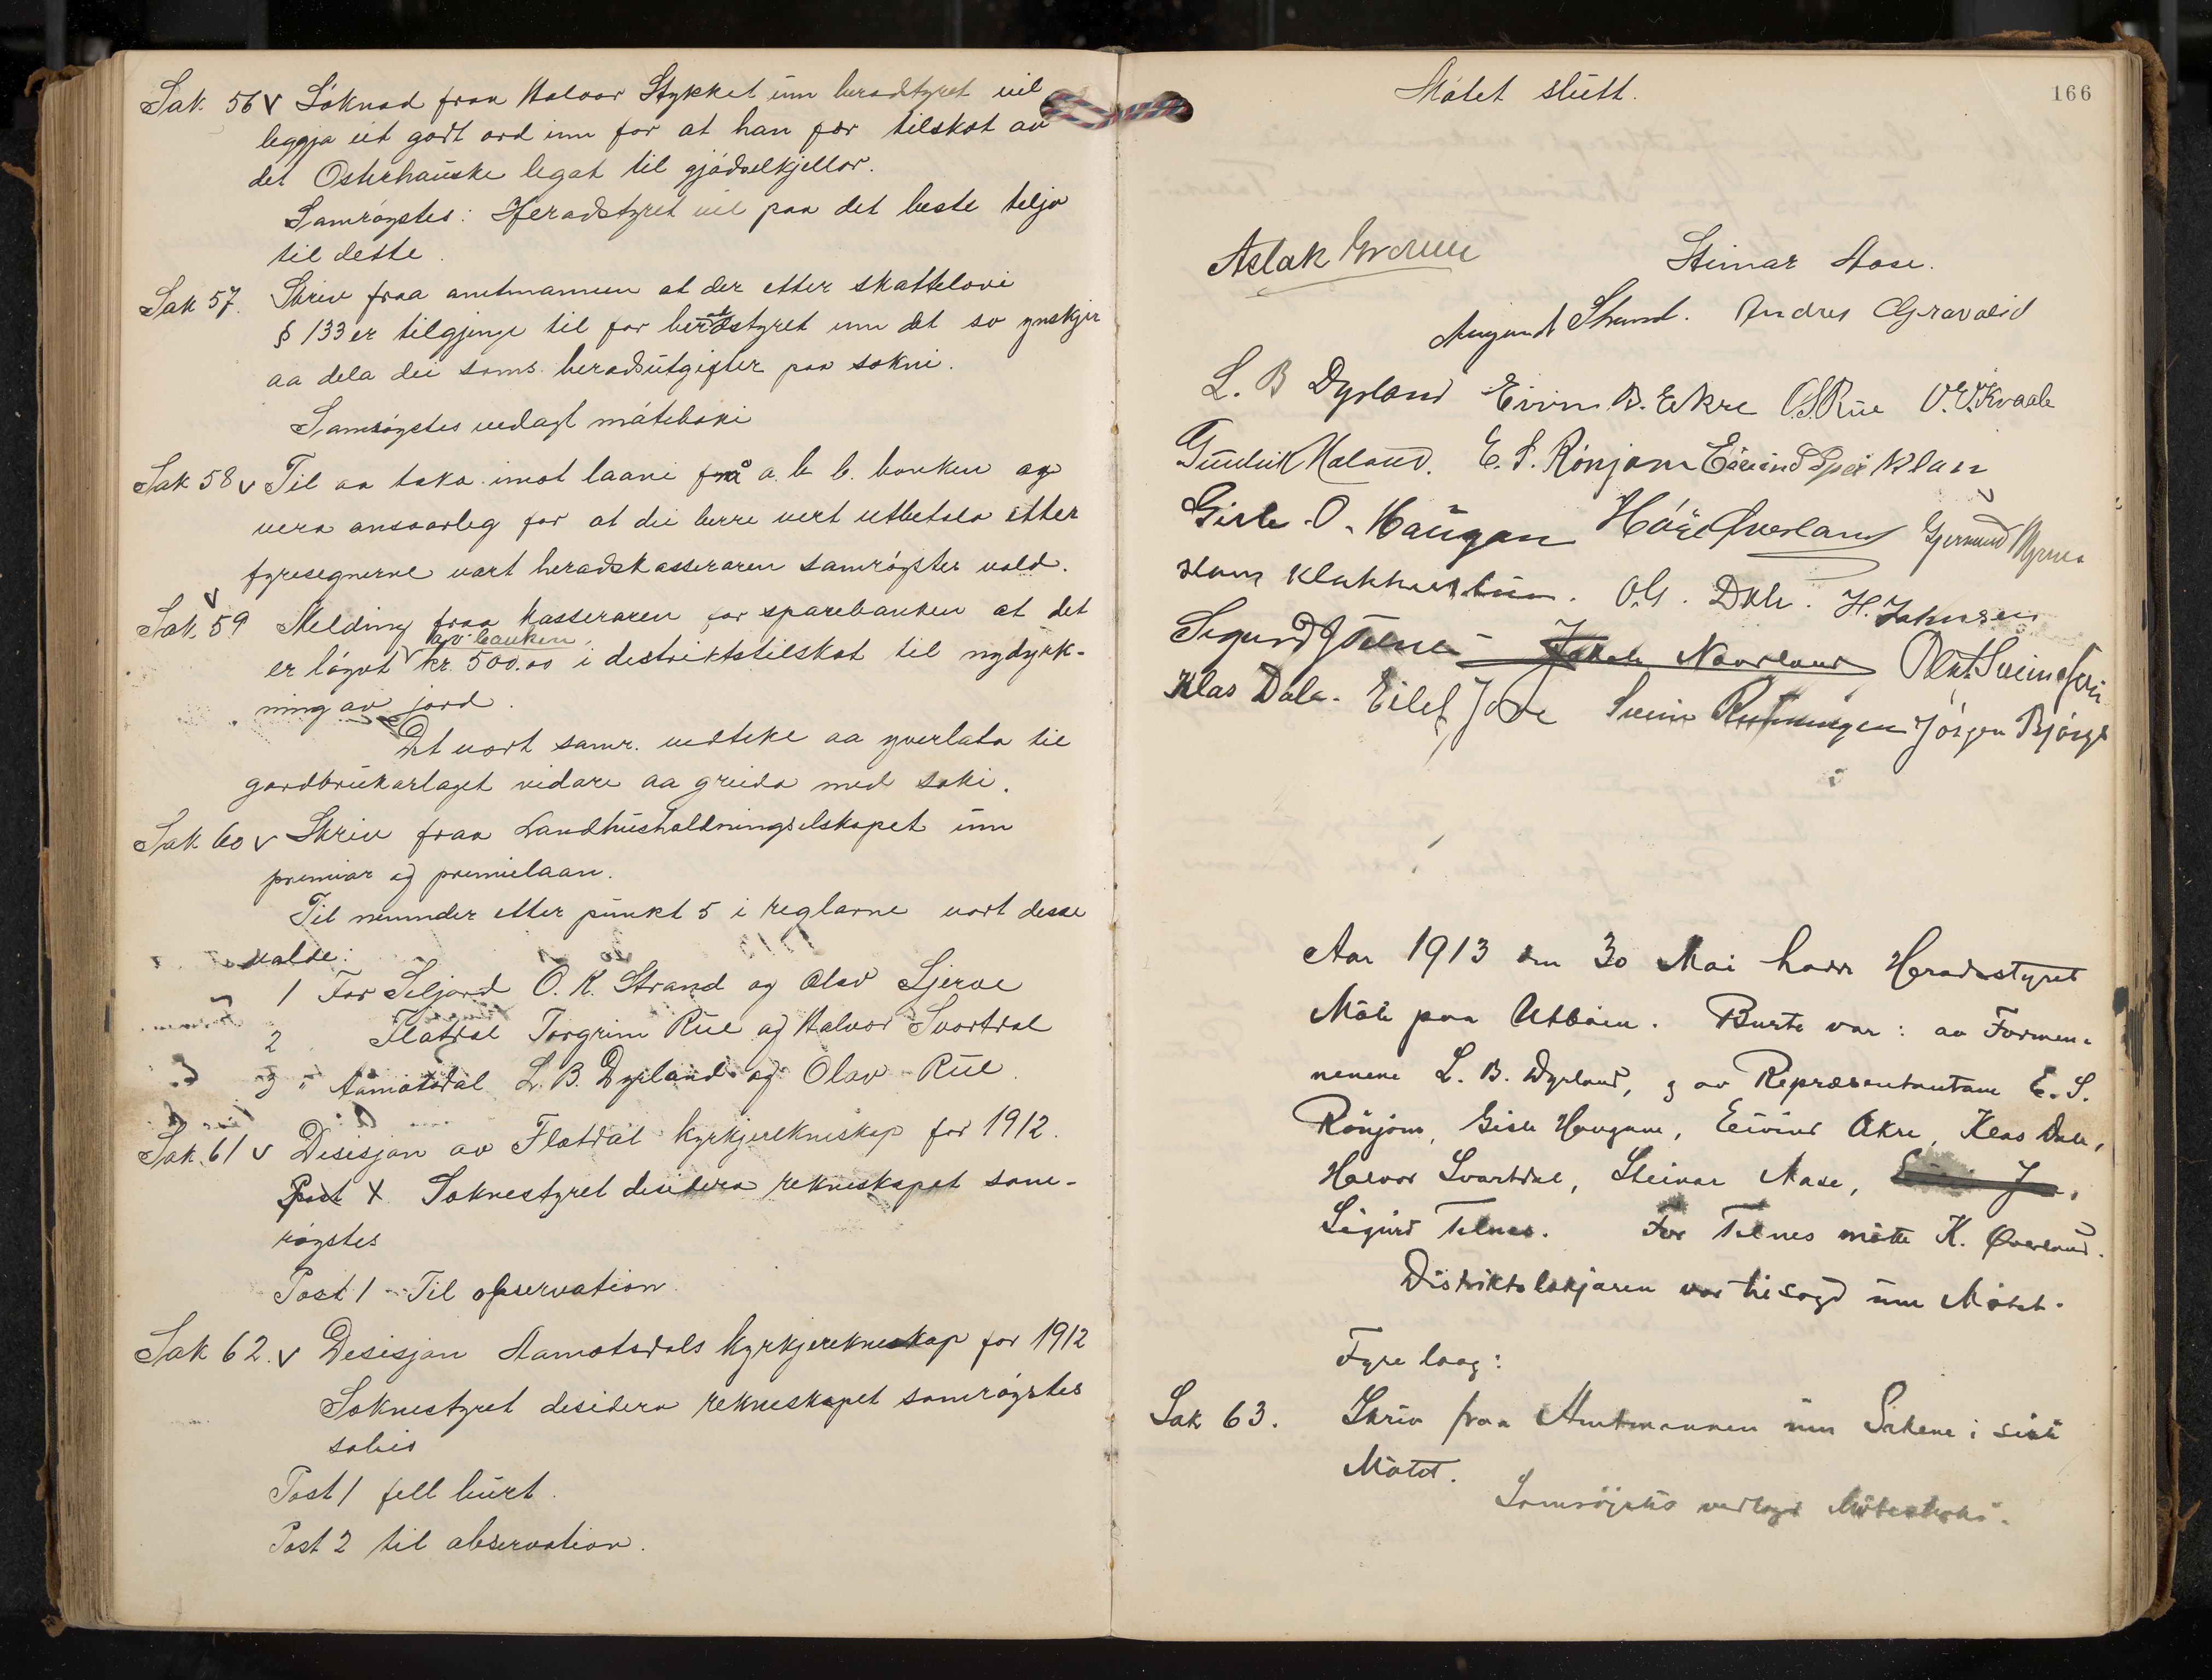 Sak. 56 v Søknad fraa Halvor Stykket um heradstyret vil
leggja eit godt ord inn for at han fær tilskot av
det Osterhauske legat til gjødselkjellar.
Samrøystes: Heradstyret vil paa det beste telja
til dette.
Sak 57. Skriv fraa amtmannen at der etter skattelovi
§ 133 er tilgjenge til for heradstyret um det so ynskjer
aa dela dei sams heradsutgifter paa sokni.
Samrøystes vedlagt møteboki
Sak 58 v Til aa taka imot laani frå a. b. b. banken og
vera ansvarleg for at dei berre vert utbetala etter
fyresegnerne vart heradskasseraren samrøystes vald.
Sak v 59 Melding fraa kasseraren for sparebanken at det
er løyvt v av banken kr. 500.00 i distriktstilskot til nydyrk-
ning av jord.
Det vart samr. vedteke aa yverlata til
gardbrukarlaget vidare aa greida med saki.
Sak 60 v Skriv fraa Landhusholdningselskapet um
premiar og premielaan.
Til nemnder etter punkt 5 i reglarne vart desse
valde:
1 For Seljord O. K. Strand og Olav Sjerve
2 Flatdal Torgrim Rue og Halvor Svortdal
3 " Aamotsdal L. B. Dyrland og Olav Rue.
Sak. 61 v Desisjon av Flatdal kyrkjerekneskap for 1912.
Post X. Soknestyret desidera rekneskapet sam-
røystes
Post 1 - Til observation.
Sak 62. v Desisjon Aamotsdals kyrkjerekneskap for 1912
Soknestyret desidera rekneskapet samrøystes
Post 1 fell burt.
Post 2 til observation.
166
Møtet slutt.
Aslak
Steinar Aase.
Strand. Andres Gravalid
L. B Dyrland Eivin B. Ekre O.S. Rue O.E. Kvaale
Maland. E. S. Rönjom Eivind
Gisle O. Haugan Overland Gjermund
Hans O. G. Dale. H. Johnsen
Sigurd Jakob Naordland
Klas Dale. Eilef Svein Jörgen Björge
Aar 1913 den 30 Mai havde Heradsstyret
Möte paa Utböen. Burte var: av Formen-
nenene L. B. Dyrland, g av Repræsentantane E. S.
Rönjom, Gisle Haugane, Eivind Ekre, Klas Dale,
Halvor Svartdal, Steinar Aase,
Sigurd Telnes. For Telnes mötte K. Överland.
Distriktslækjaren var tilsagd um Mötet.
Fyre laag:
Sak 63. Skriv fraa Amtmannen um Sakene i siste
Mötet.
Samröystes vedlagt Möteboki.